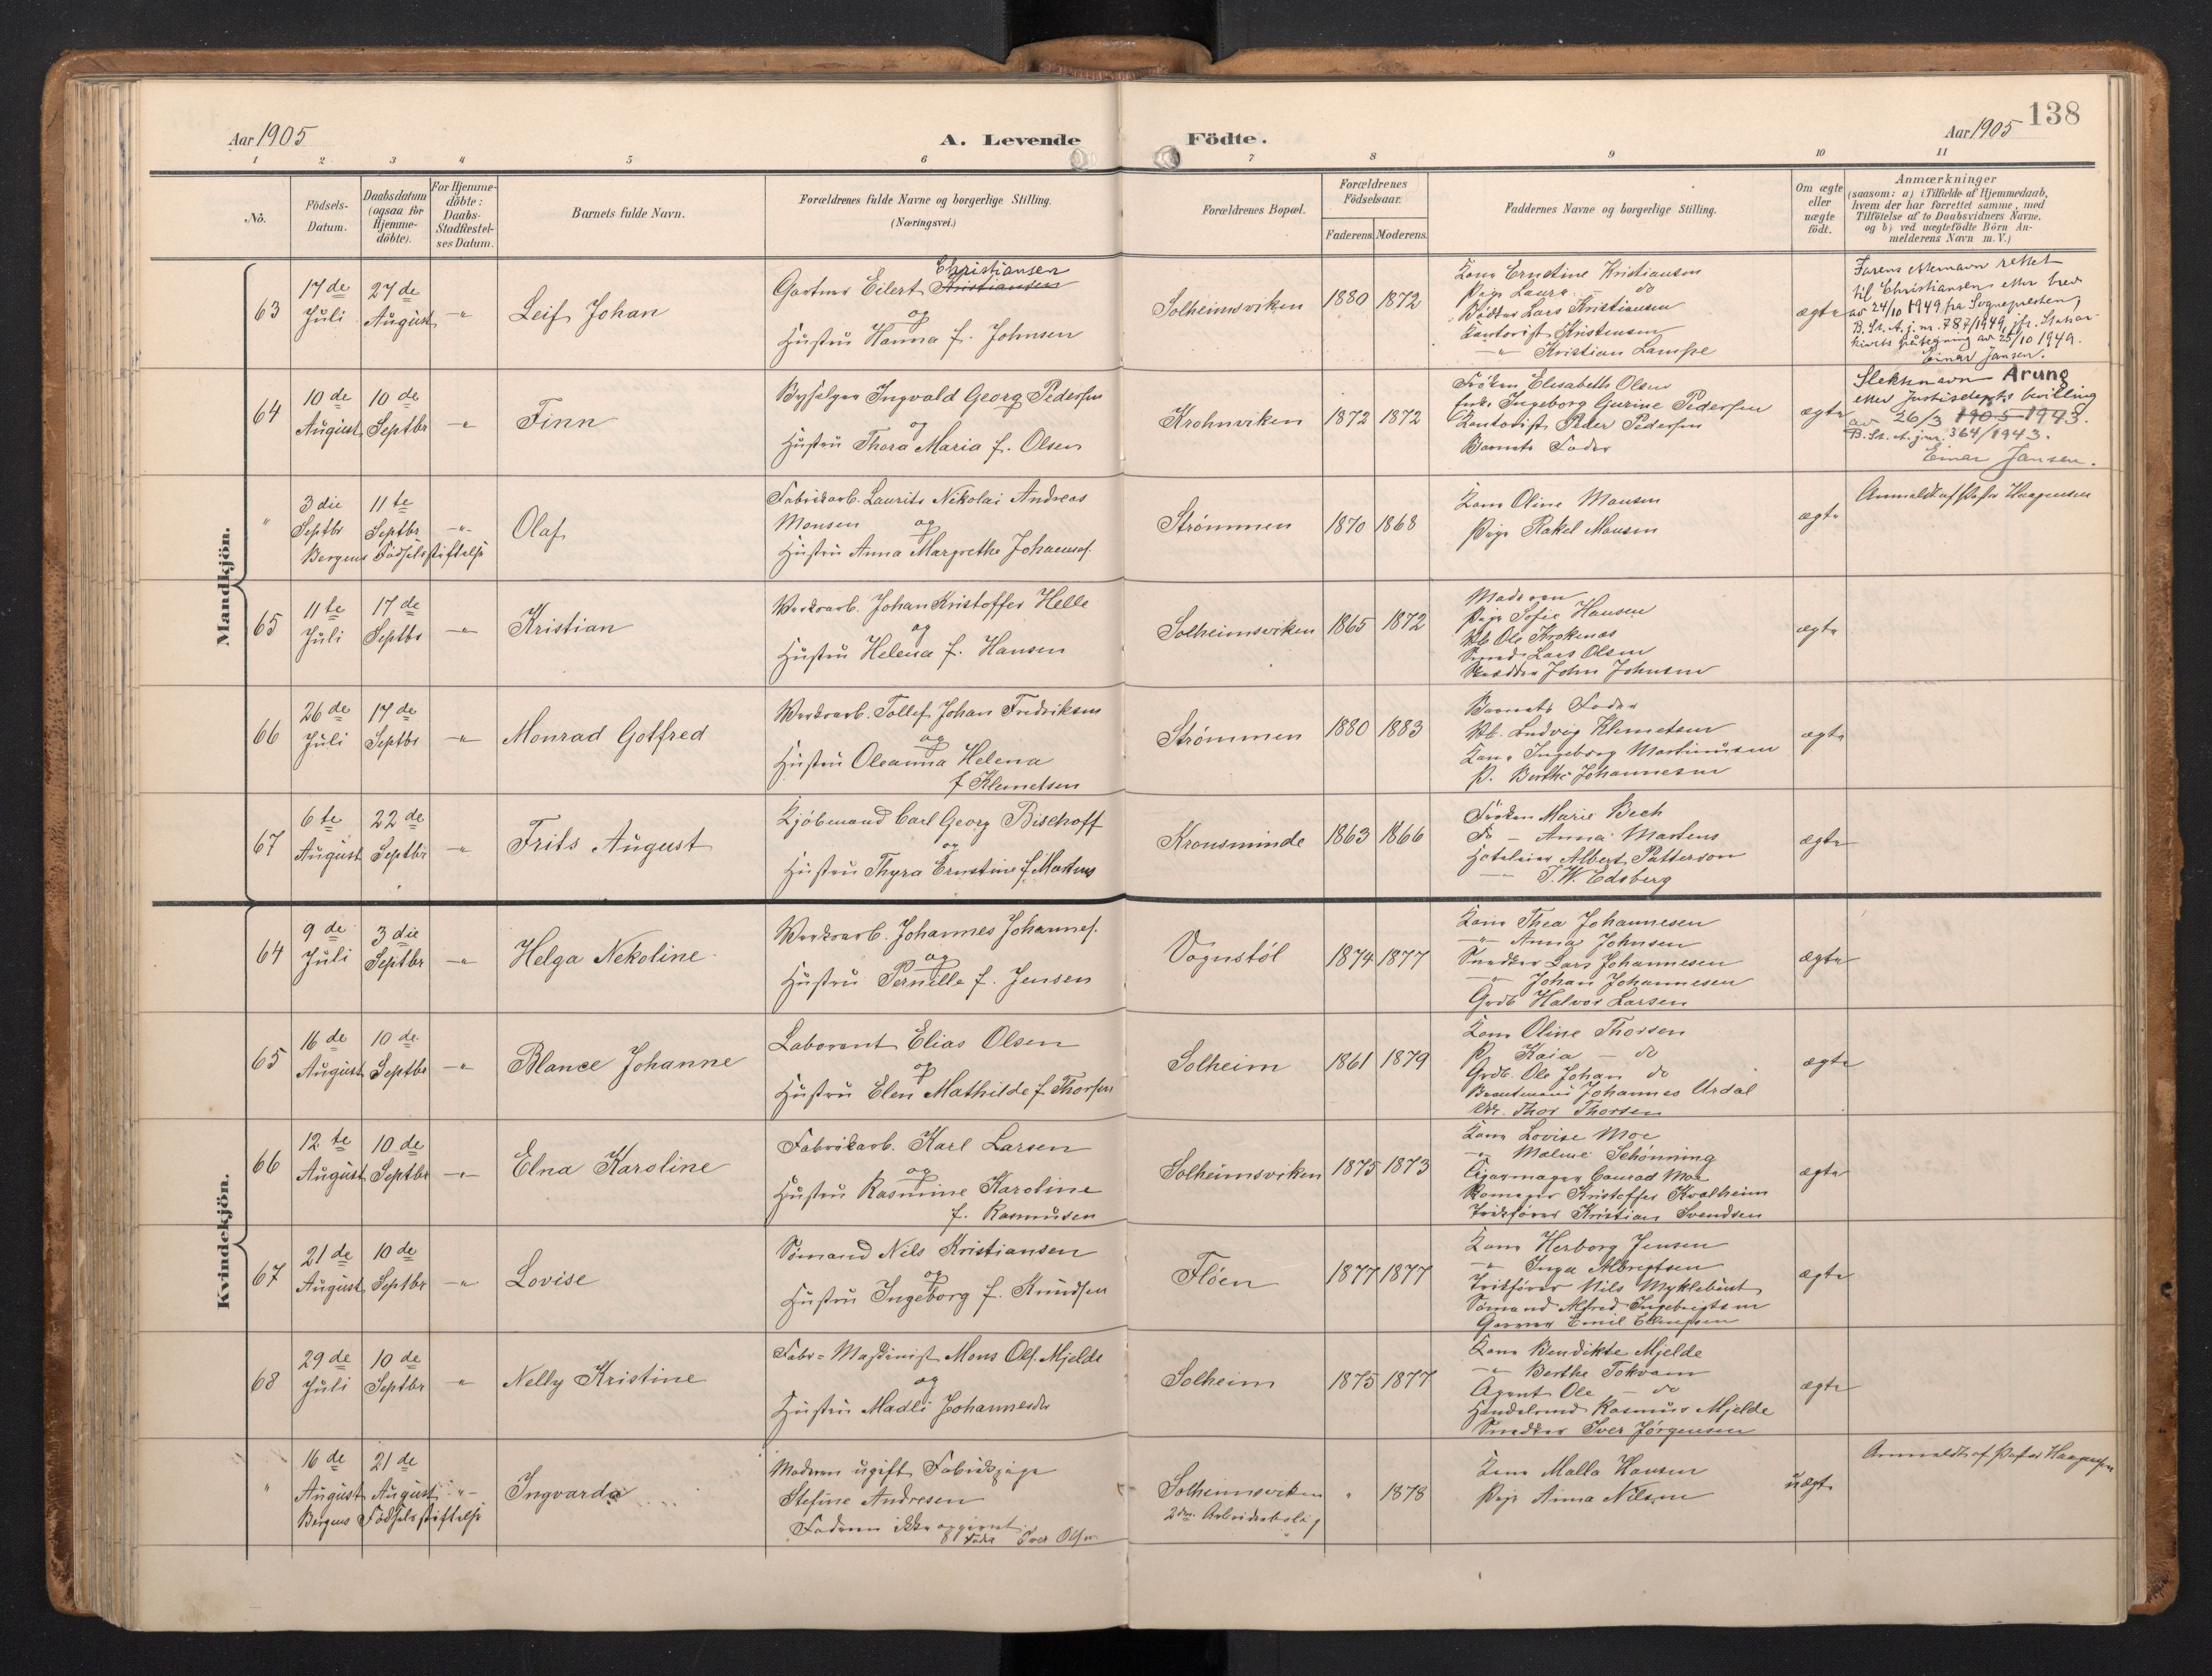 138
Aar 1905
A. Levende Födte.
Aar 1905
1 2 3 4 5 6 7 8 9 10 11
No.
Födsels-Datum.
Daabsdatum (ogsaa for Hjemme-döbte).
For Hjemme-döbte: Daabs-Stadfæstel-ses Datum.
Barnets fulde Navn.
Forældrenes fulde Navne og borgerlige Stilling.
(Næringsvei.)
Forældrenes Bopæl.
Forældrenes Födselsaar.
Faderens. Moderens.
Faddernes Navne og borgerlige Stilling.
Om ægte eller uægte födt.
Anmærkninger
(saasom: a) i Tilfælde af Hjemmedaab,
hvem der har forrettet samme, med
Tilföielse af to Daabsvidners Navne.
og b) ved uægtefödte Börn An-
melderens Navn m. V.)
Mandkjön.
63
17de Juli
27de August
-"-
Leif Johan
Gartner Eilert Kristiansen
Christiansen
og
Hustru Hanna f. Johnsen
Solheimsviken
1880 1872
Kone Ernstine Kristiansen
Pige Laura - do
Bödker Lars Kristiansen
Kontorist Kristensen
-"- Kristian Lampe
ægte
Farens etternavn rettet
til Christiansen etter brev
av 24/10 1949 fra Sognepresten,
B. St. A. j. nr. 787/1949, jfr. Statsar-
kivets påtegning av 25/10 1949.
Einar Jansen.
64
10de August
10de Septbr
-"-
Finn
Bysælger Ingvald Georg Pedersen
og
Hustru Thora Maria f. Olsen
Krohnviken
1872 1872
Fröken Elisabeth Olsen
Enke Ingeborg Gurine Pedersen
Kontorist Peder Pedersen
Barnets Fader
ægte
Slektsnavn Arung
etter Justisdepts bevilling
av 26/3 1905 1943.
B. St. A. j.nr. 364/1943.
Einar Jansen.
"
3die Septbr
11te Septbr
-"-
Bergens Födselsstiftelse
Olaf
Fabrikarb. Laurits Nikolai Andreas
Monsen og
Hustru Anna Margrethe Johannesf.
Strömmen
1870 1868
Kone Oline Monsen
Pige Rakel Monsen
ægte
Anmeldt af Pastor Haagensen
65
11te Juli
17de Septbr
-"-
Kristian
Verksarb. Johan Kristoffer Helle
og
Hustru Helena f. Hansen
Solheimsviken
1865 1872
Moderen
Pige Sofie Hansen
Arb Ole Krokenæs
Smed Lars Olsen
Skrædder John Johnsen
ægte
66
26de Juli
17de Septbr
-"-
Monrad Gotfred
Verksarb. Tollef Johan Fredriksen
og
Hustru Oleanna Helena
f Klemetsen
Strömmen
1880 1883
Barnets Fader
Arb. Ludvig Klemetsen
Kone Ingeborg Martinusen
P. Berthe Johannesen
ægte
67
6te August
22de Septbr
-"-
Frits August
Kjöbmand Carl Georg Bischoff
og
Hustru Thyra Ernstine f Martens
Kronsminde
1863 1866
Fröken Marie Bech
Fr - Anna Martens
Hoteleier Albert Patterson
-"- T. W. Edsberg
ægte
Kvindekjön.
64
9de Juli
3die Septbr
-"-
Helga Nekoline
Verksarb. Johannes Johannes.
og
Hustru Pernille f. Jensen
Vognstöl
1874 1877
Kone Thea Johannesen
-"- Anna Johnsen
Snedker Lars Johannesen
-"- Johan Johannesen
Grdb Halvor Larsen
ægte
65
16de August
10de Septbr
-"-
Blance Johanne
Laborant Elias Olsen
og
Hustru Elen Mathilde f Thorsen
Solheim
1861 1879
Kone Oline Thorsen
P. Kaia - do
Grdb. Ole Johan do
Brandmand Johannes Urdal
Arb. Thor Thorsen
ægte
66
12te August
10de Septbr
-"-
Elna Karoline
Fabrikarb. Karl Larsen
og
Hustru Rasmine Karoline
f. Rasmusen
Solheimsviken
1875 1873
Kone Lovise Moe
-"- Malene Schönning
Cigarmager Conrad Moe
Skomager Kristoffer Kvalheim
Trikförer Kristian Svendsen
ægte
67
21de August
10de Septbr
-"-
Lovise
Sömand Nils Kristiansen
og
Hustru Ingeborg f. Knudsen
Flöen
1877 1877
Kone Herborg Jensen
-"- Inga Albregtsen
Trikförer Nils Myklebust
Sömand Alfred Ingebrigtsen
Garver Emil
ægte
68
29de Juli
10de Septbr
-"-
Nelly Kristine
Fabr-Maskinist Mons Ols. Mjelde
og
Hustru Madli Johannesdr
Solheim
1875 1877
Kone Bendikte Mjelde
-"- Berthe Tokvam
Agent Ole - do
Handelsmd Rasmus Mjelde
Snedker Iver Jörgensen
ægte
"
16de August
21de August
-"-
Bergens Födselsstiftelse
Ingvarda
Moderen ugift Fabrikpige
Stefine Andresen
Faderen ikke opgivet
Iver Olsen
Solheimsviken
2den Arbeiderbolig
" 1878
Kone Malla Hansen
Pige Anna Nilsen
uægte
Anmeldt af Pastor Haagensen